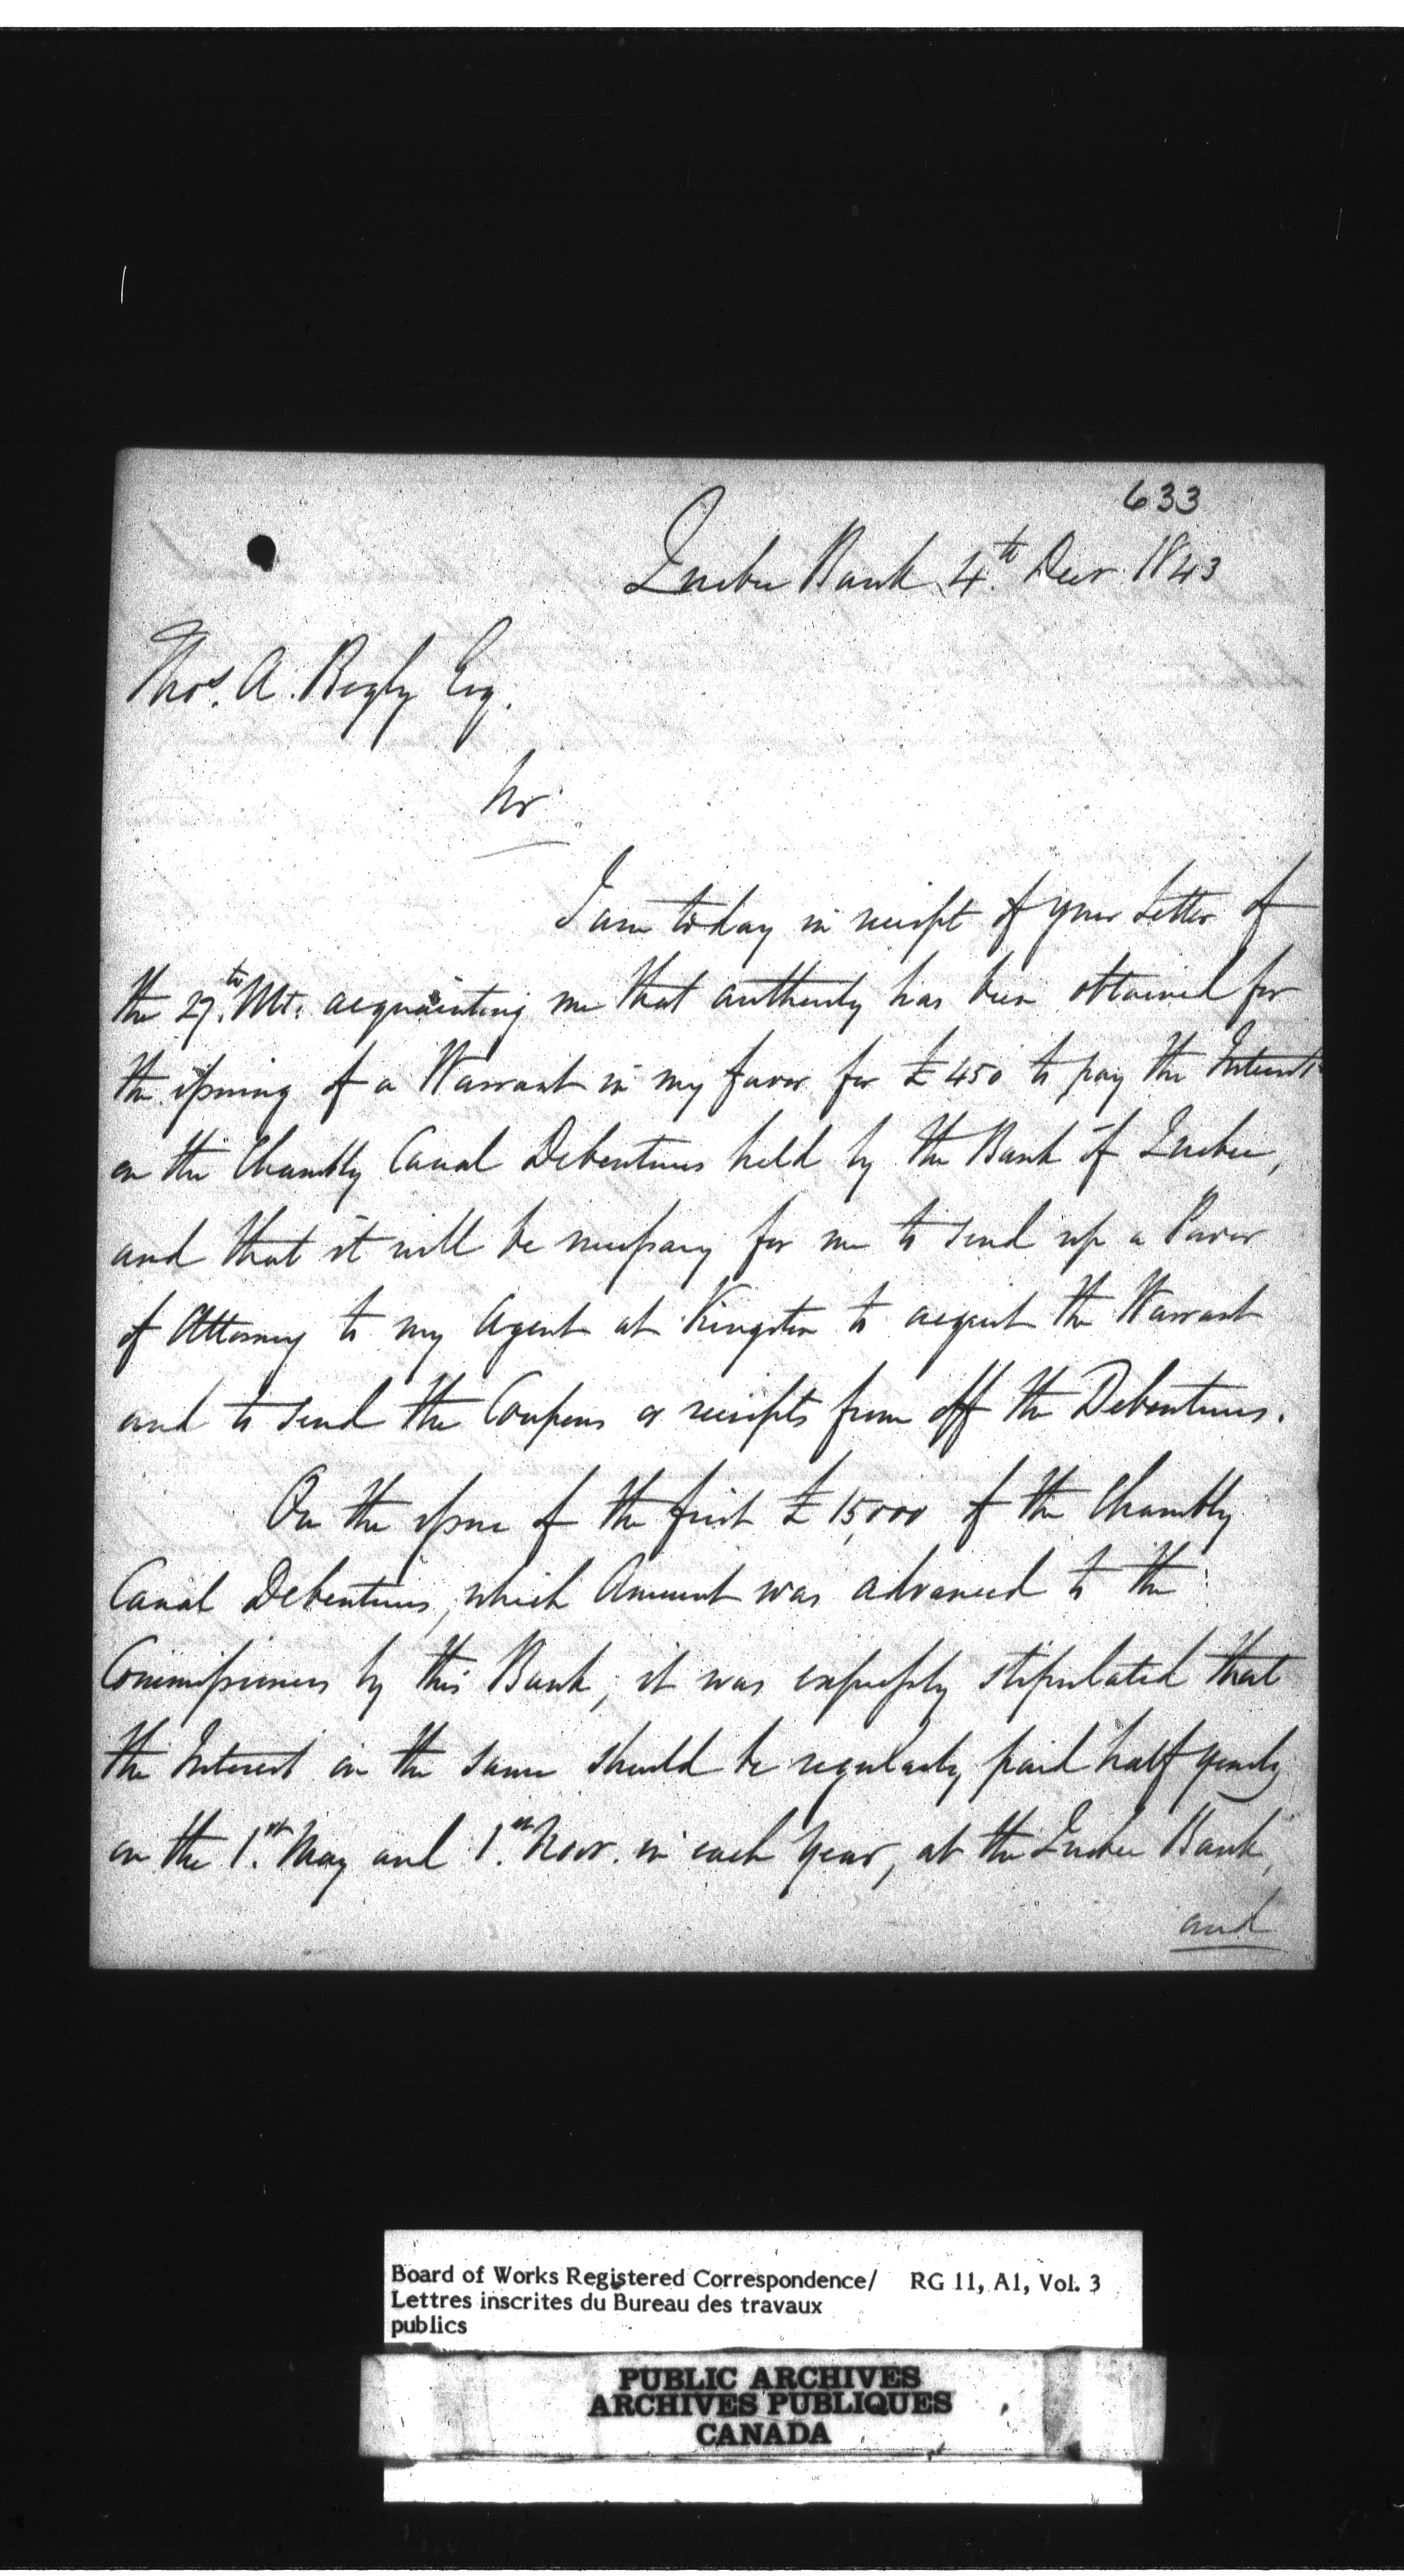 633
Quebec Bank 4th Decr 1843
Thos. A. Begly Esq.
Sir
I am today in receipt of your Letter of
the 27th Ult. acquainting me that authority has been obtained for
the issuing of a Warrant in my favor for £450 to pay the Interest
on the Chambly Canal Debentures held by the Bank of Quebec,
and that it will be necessary for me to send up a Power
of Attorney to my Agent at Kingston to acquit the Warrant
and to send the Coupons or receipts from off the Debentures.
On the issue of the first £15,000 of the Chambly
Canal Debentures, which Amount was advanced to the
Commissioners by this Bank, it was expressly stipulated that
the Interest on the same should be regularly paid half yearly
on the 1st. May and 1st. Novr. in each Year, at the Quebec Bank,
and
Board of Works Registered Correspondence/ RG 11, A1, Vol. 3
Lettres inscrites du Bureau des travaux
publics
PUBLIC ARCHIVES
ARCHIVES PUBLIQUES
CANADA